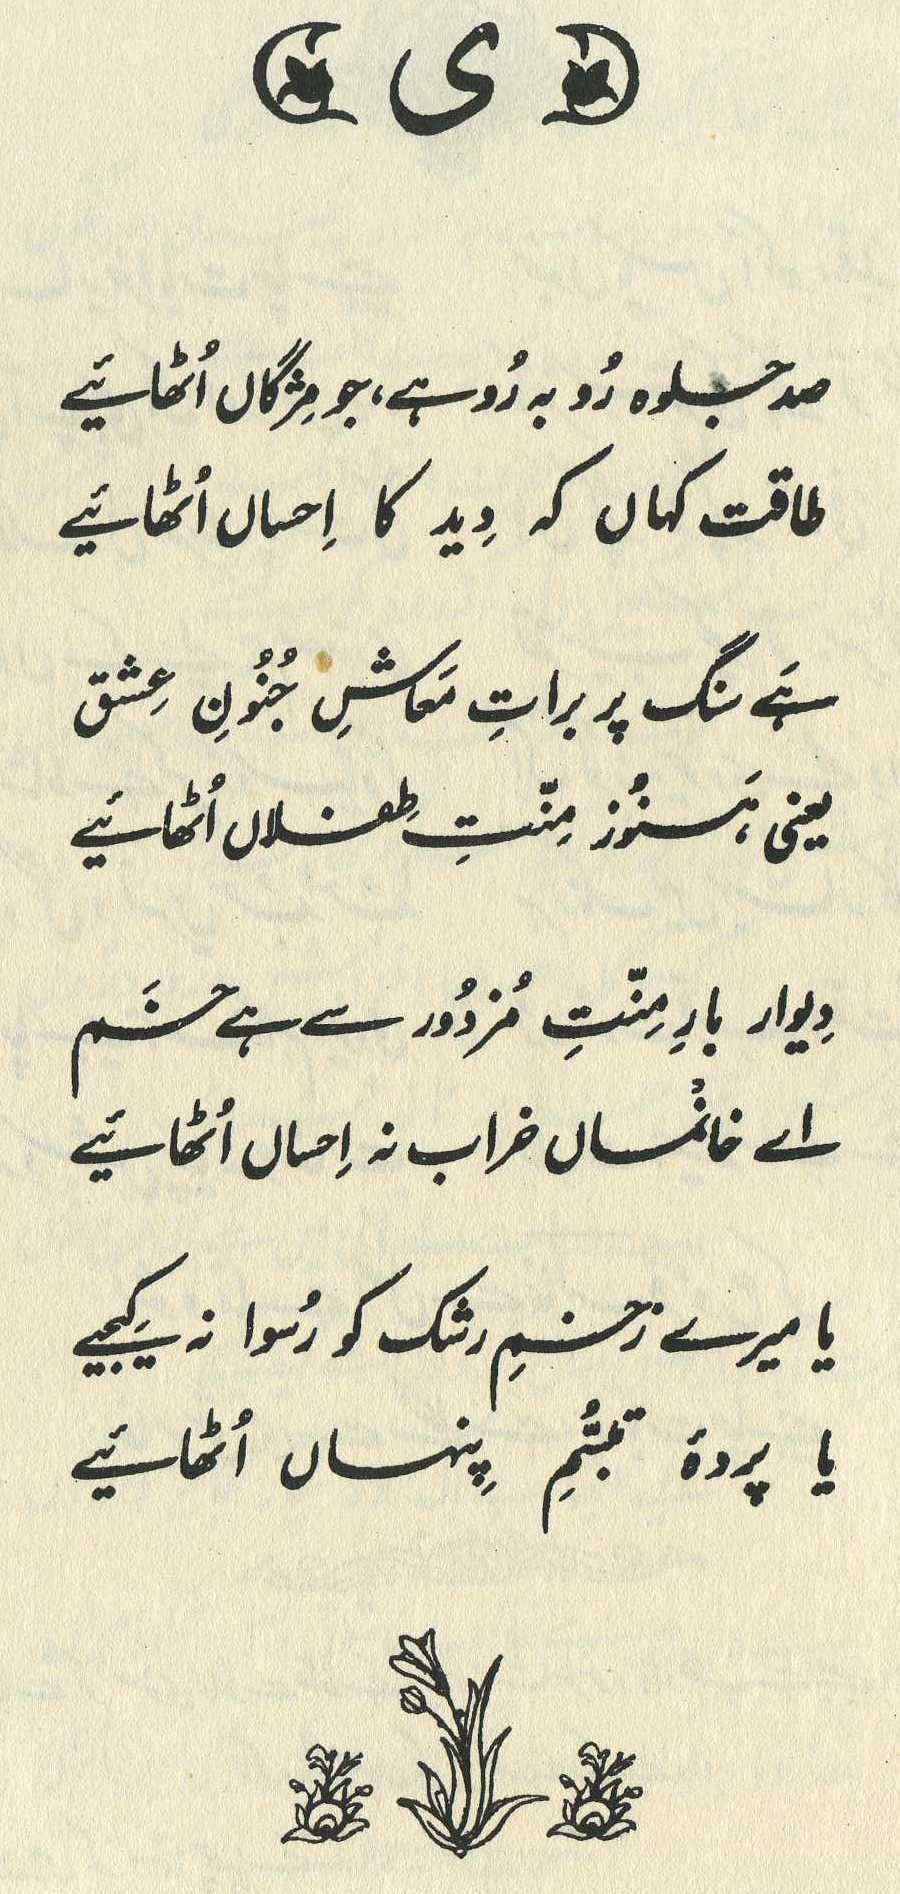 ی
صد جلوہ رُو بہ رُو ہے، جو مِژگاں اُٹھائیے
طاقت کہاں کہ دِید کا اِحساں اُٹھائیے
ہَے سنگ پر براتِ مَعاشِ جُنُونِ عِشق
یعنی ہَنُوز مِنّتِ طِفلاں اُٹھائیے
دِیوار بارِ مِنّتِ مُزدُور سے ہے خَم
اے خانُماں خراب نہ اِحساں اُٹھائیے
یا میرے زخمِ رشک کو رُسوا نہ کِیجیے
یا پردۂ تبسُّمِ پِنہاں اُٹھائیے